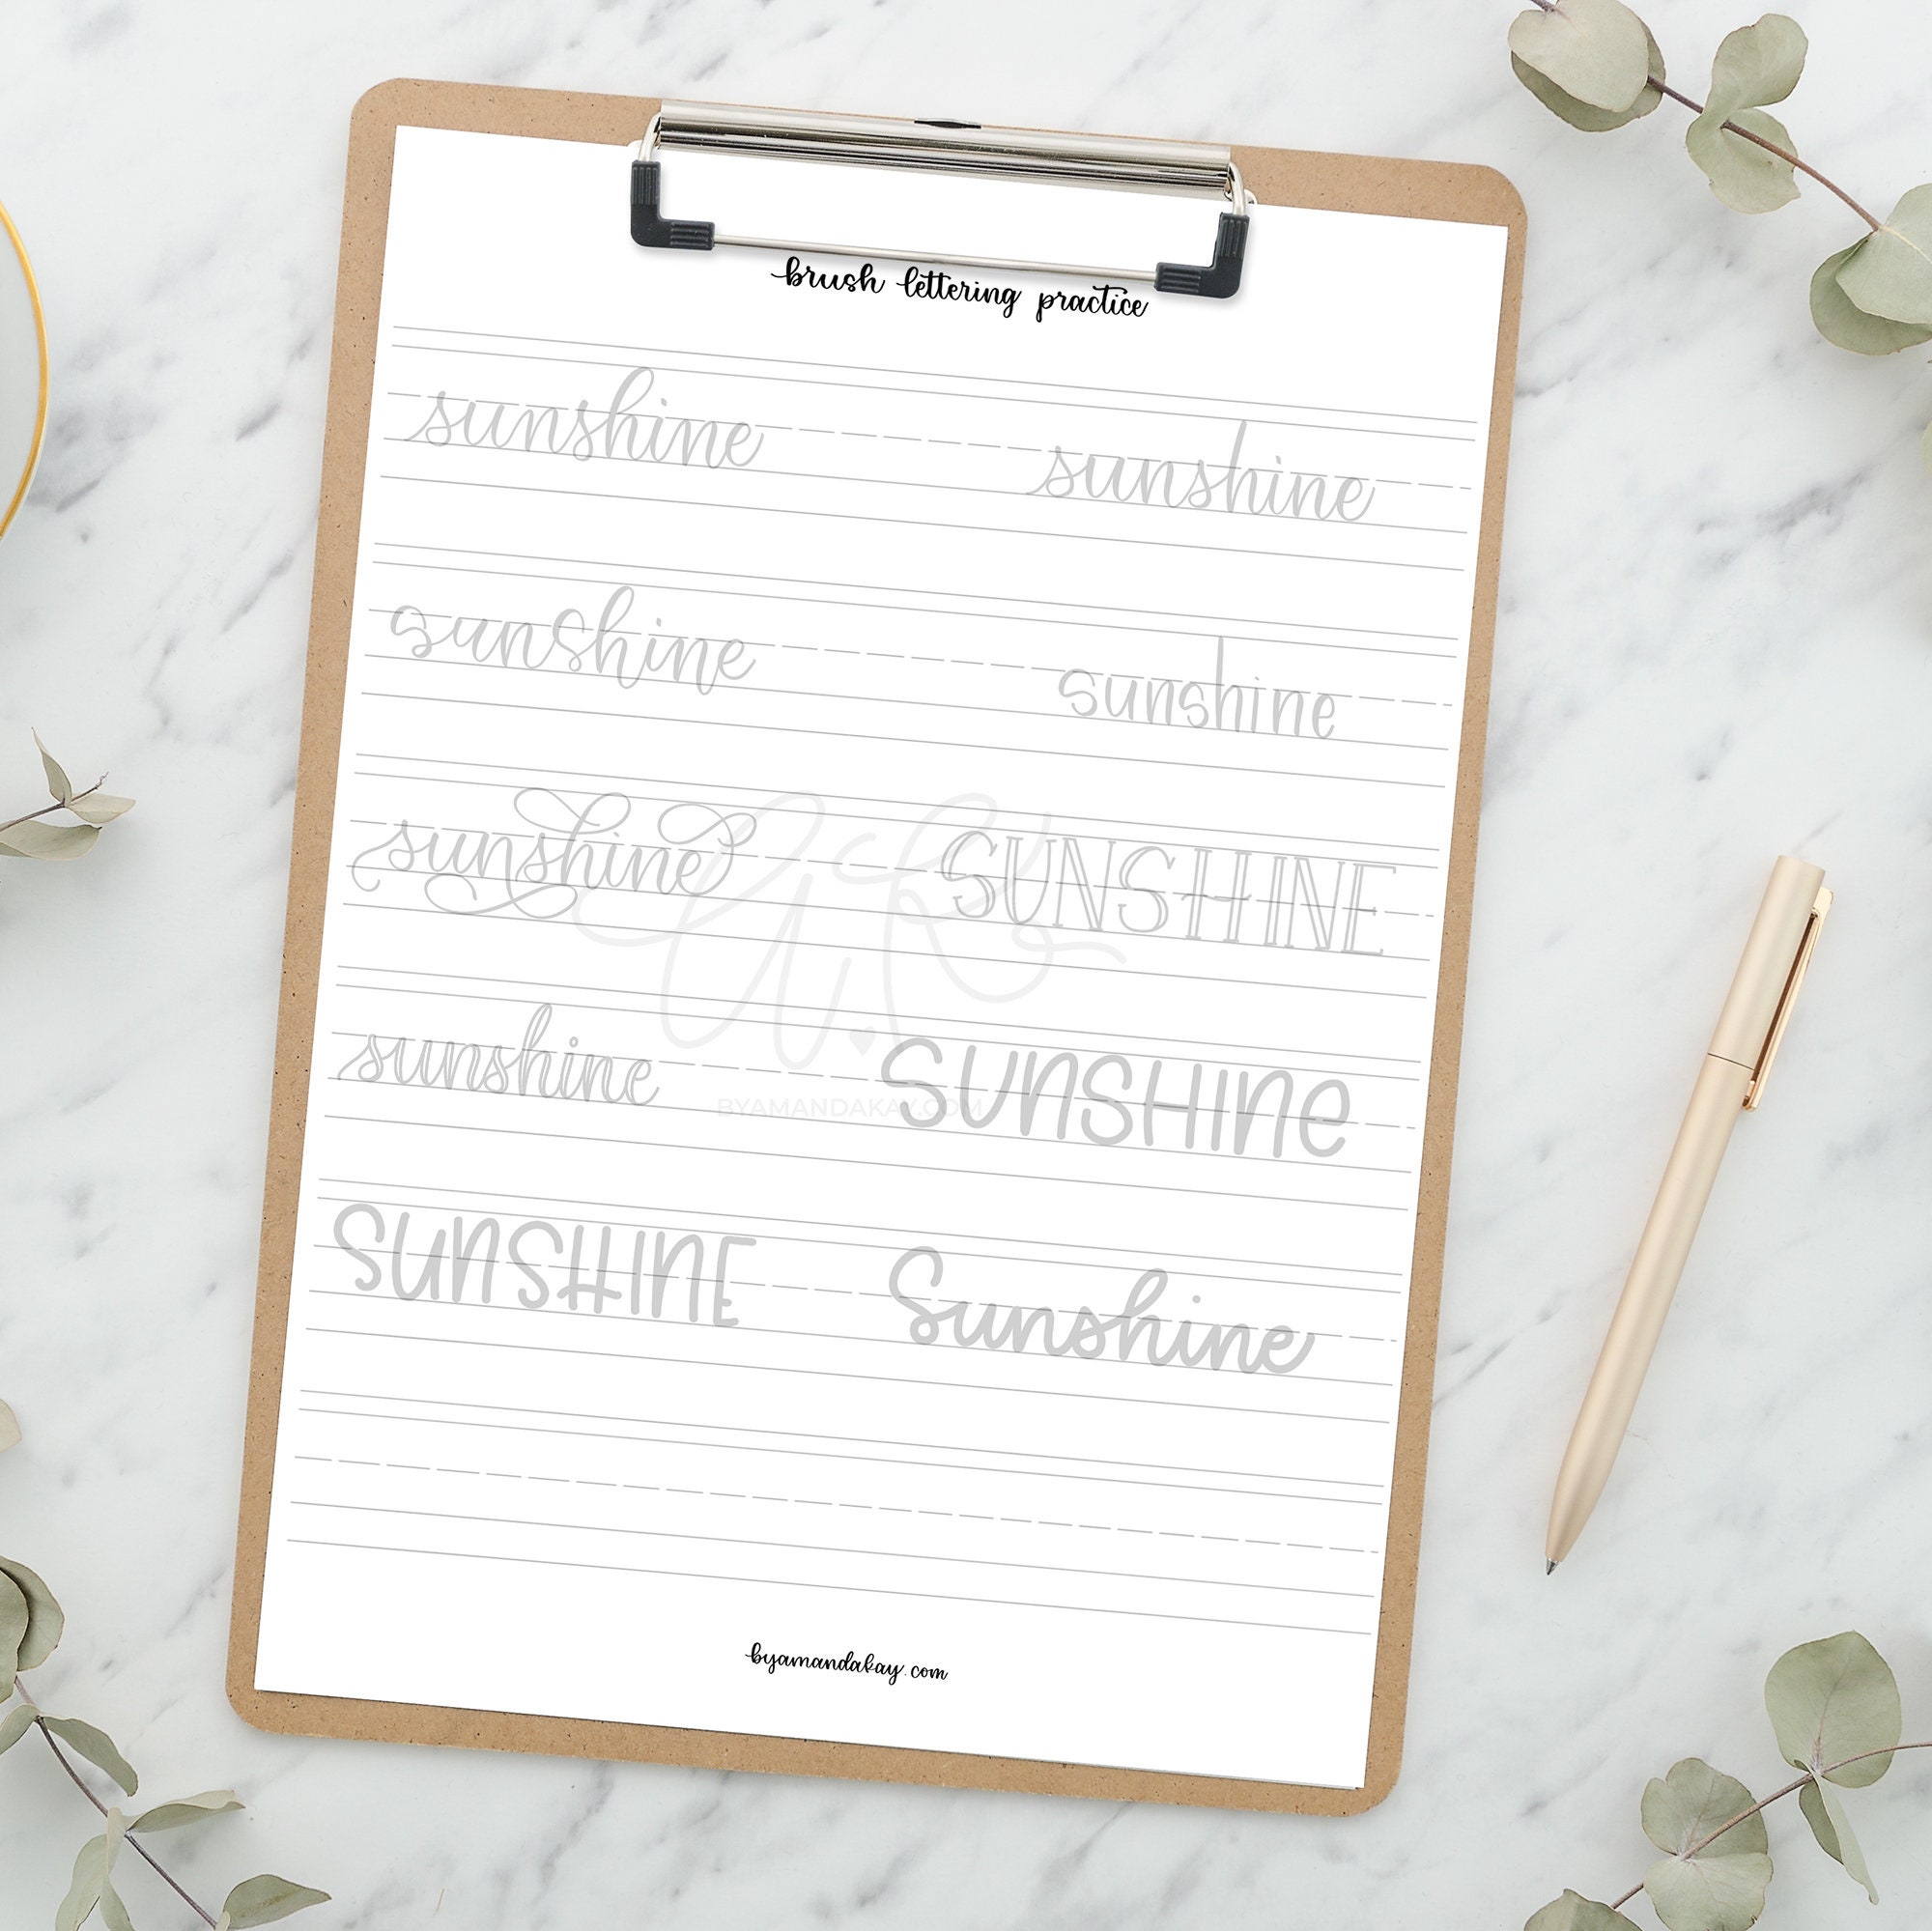 brush lettering practice
sunshine sunshine
sunshine sunshine
sunshine SUNSHINE
sunshine SUnSHIne
BYAMANDAKAY.COM
SUnSHInE Sunshine
byamandakay.com